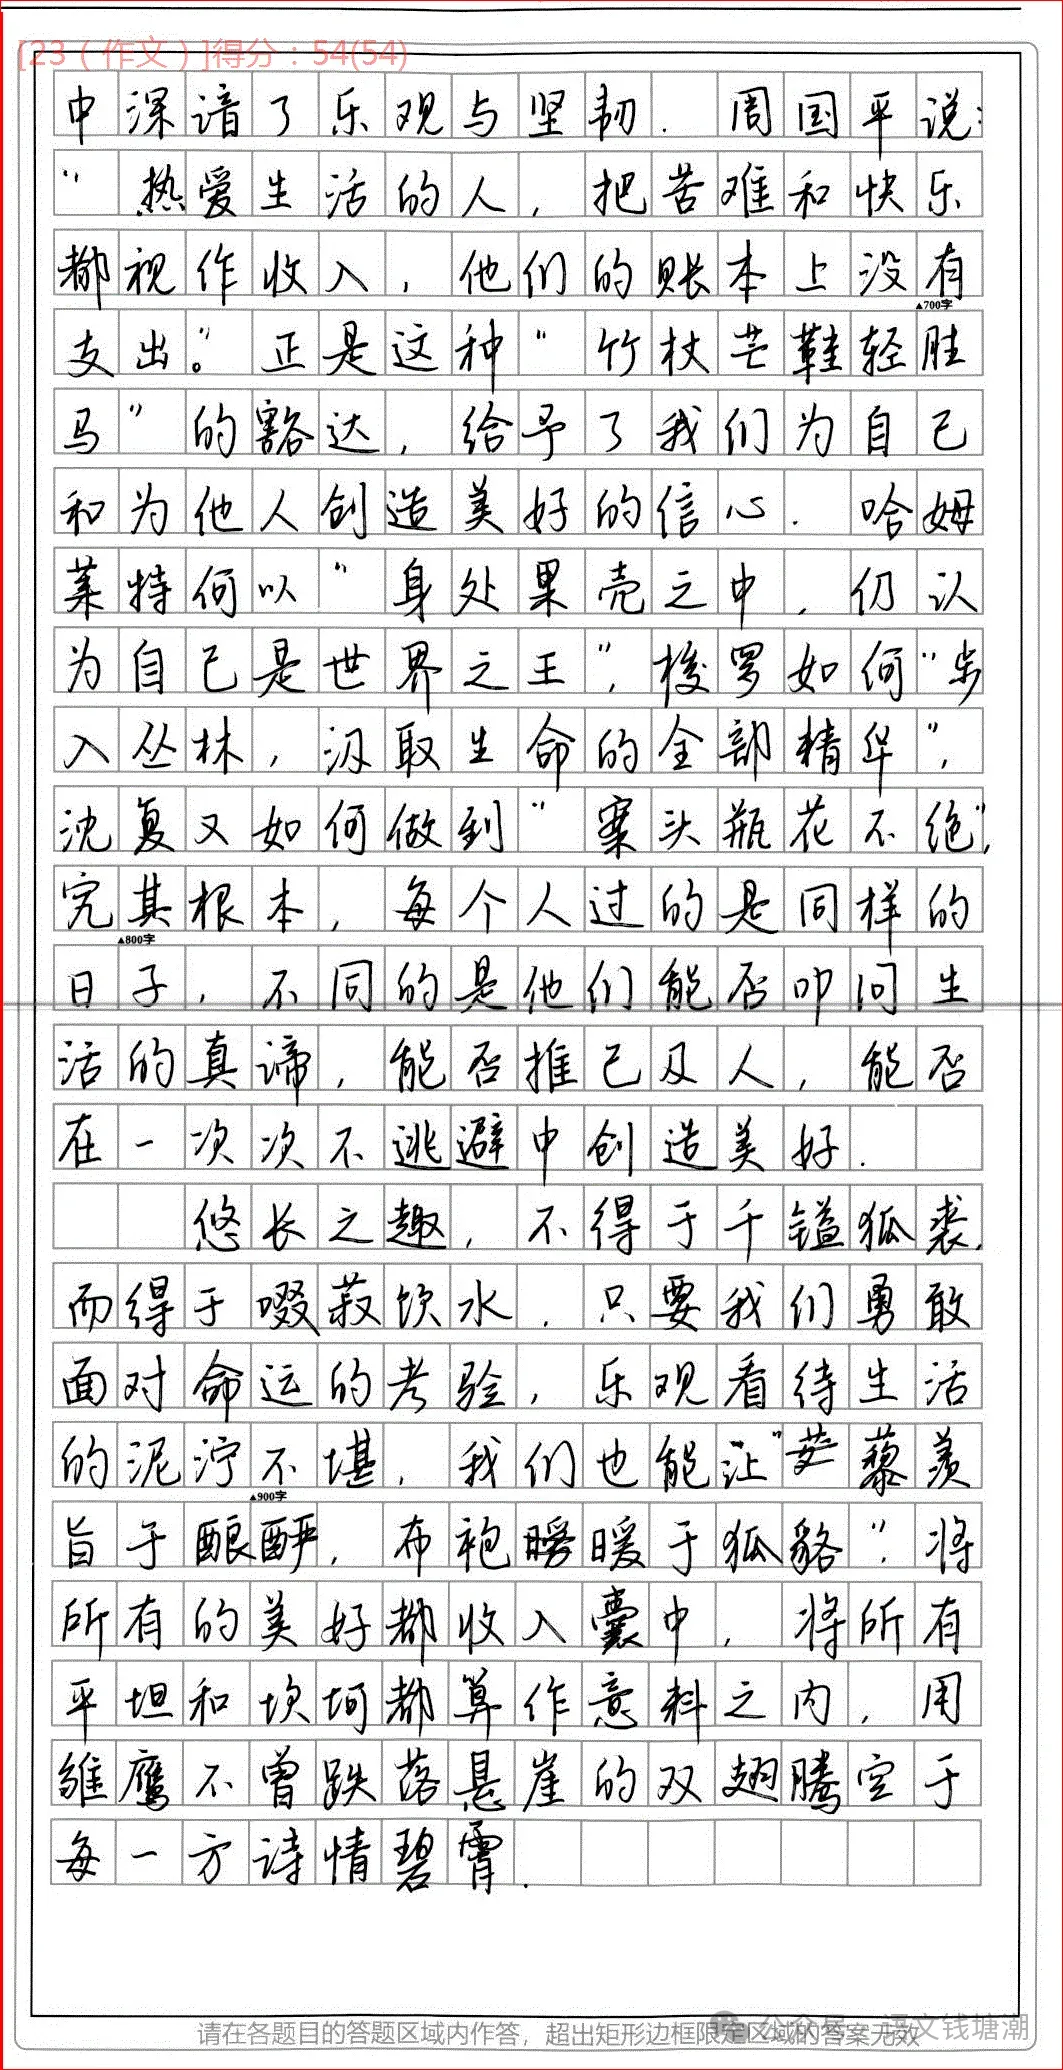 [23（作文）]得分：54(54)
中深谙了乐观与坚韧．周国平说：
“热爱生活的人，把苦难和快乐
都视作收入，他们的账本上没有
▲700字
支出。”正是这种“竹杖芒鞋轻胜
马”的豁达，给予了我们为自己
和为他人创造美好的信心．哈姆
莱特何以“身处果壳之中，仍认
为自己是世界之王”，梭罗如何“步
入丛林，汲取生命的全部精华”，
沈复又如何做到“案头瓶花不绝”，
究其根本，每个人过的是同样的
▲800字
日子，不同的是他们能否叩问生
活的真谛，能否推己及人，能否
在一次次不逃避中创造美好．
悠长之趣，不得于千镒狐裘，
而得于啜菽饮水．只要我们勇敢
面对命运的考验，乐观看待生活
的泥泞不堪，我们也能让“藜羹
▲900字
旨于酿酽，布袍暖于狐貉”，将
所有的美好都收入囊中，将所有
平坦和坎坷都算作意料之内，用
雏鹰不曾跌落悬崖的双翅腾空于
每一方诗情碧霄．
请在各题目的答题区域内作答，超出矩形边框限定区域的答案无效
公众号·语文钱塘潮